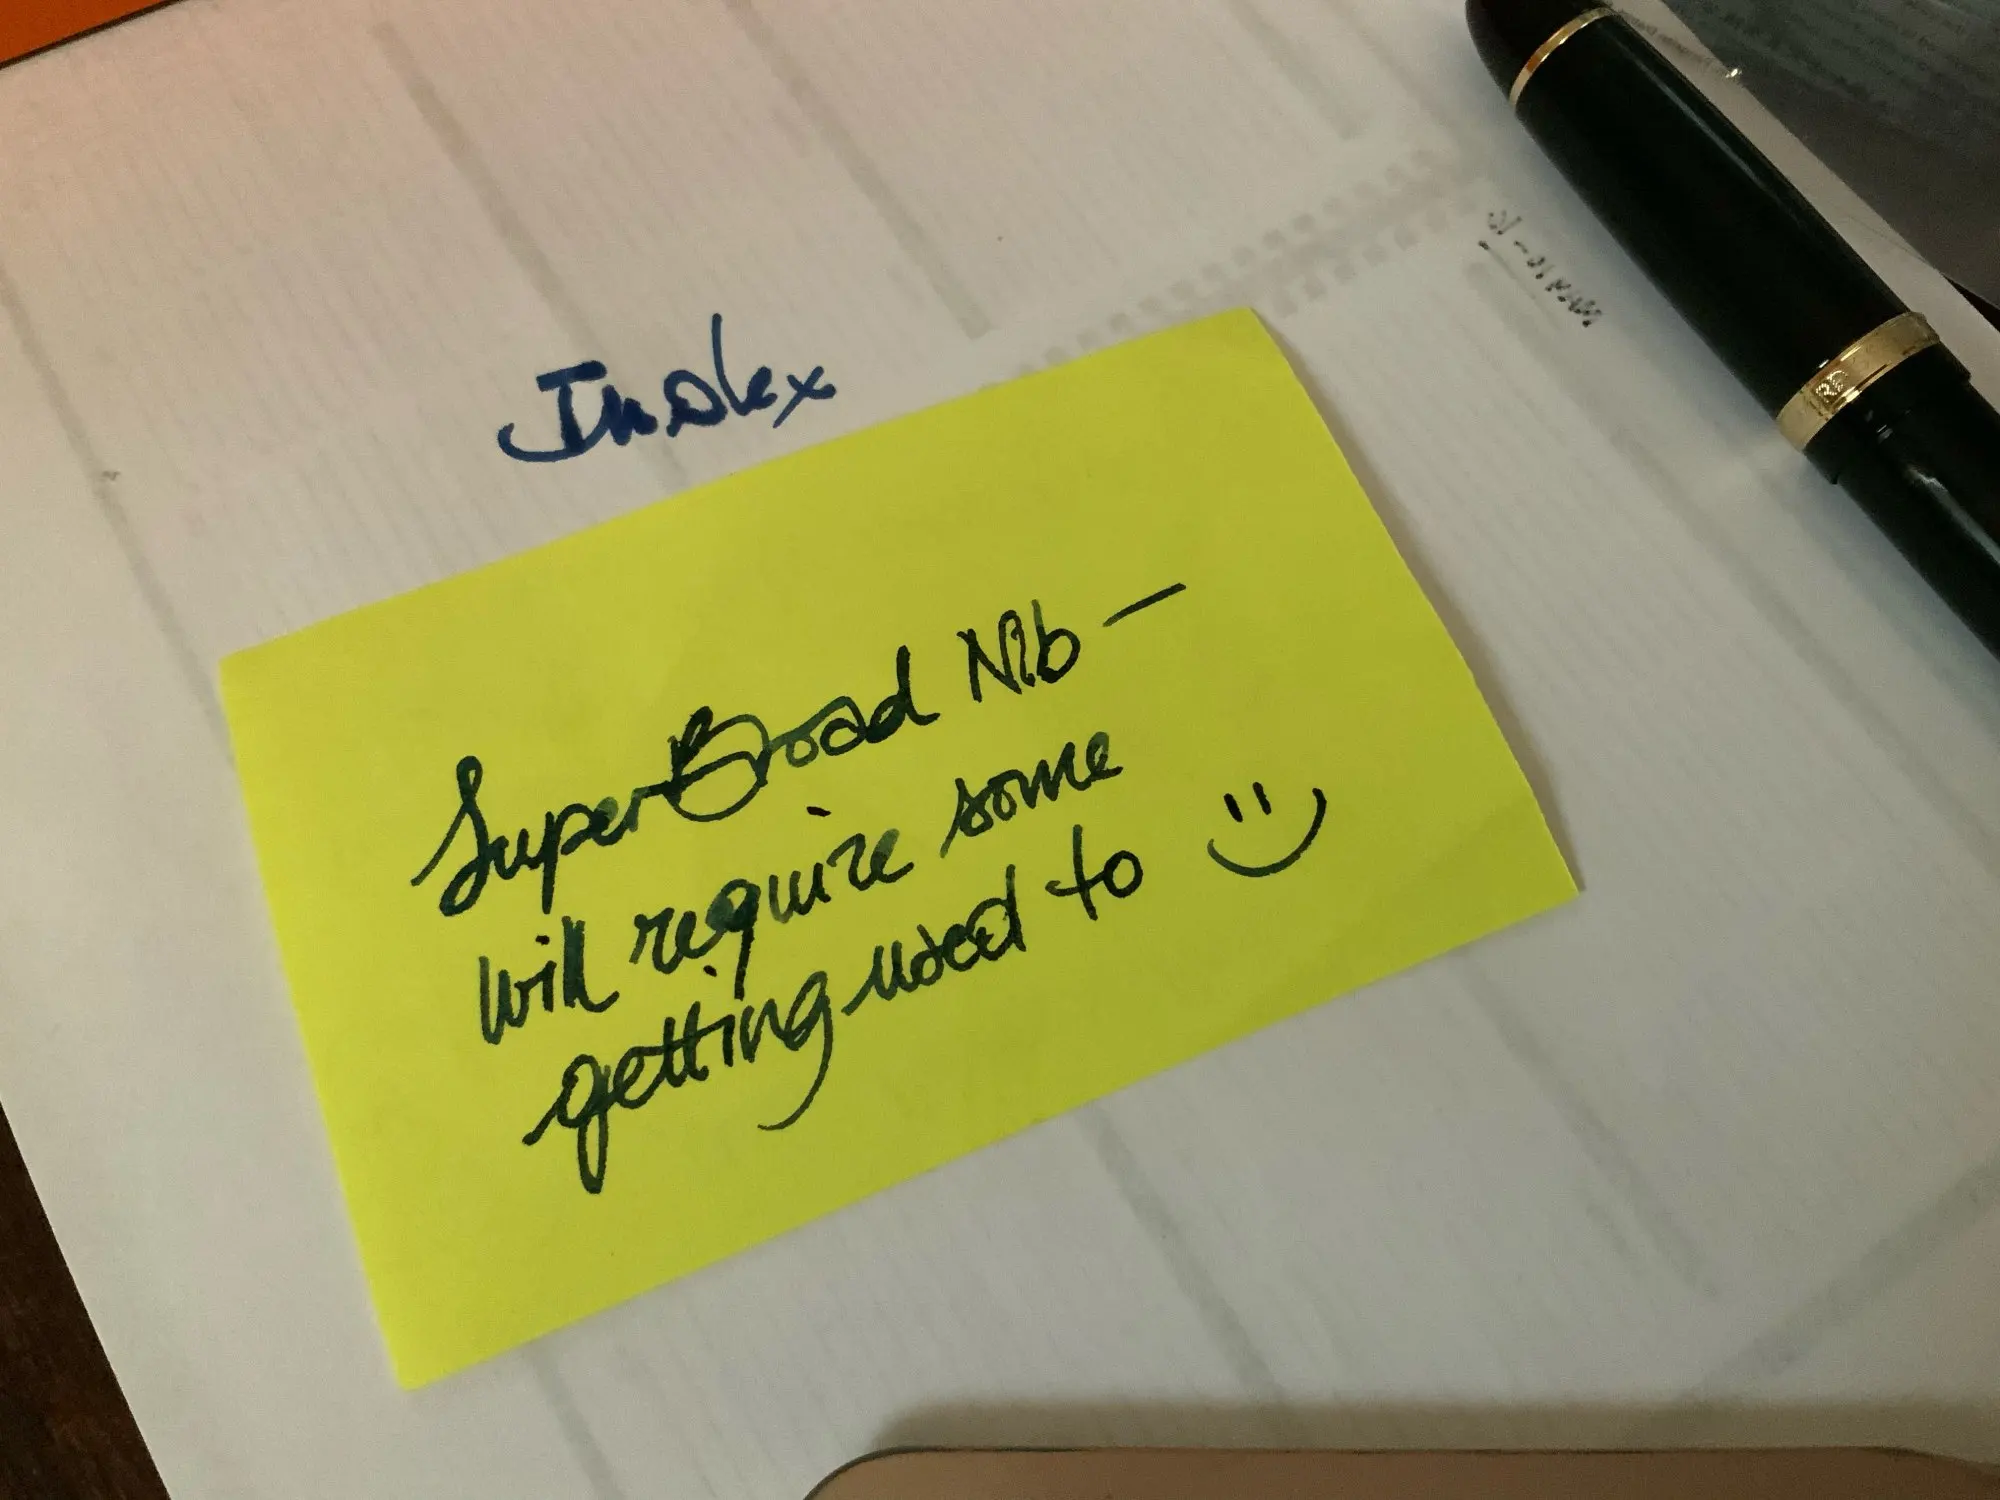 Index
Super Broad Nib —
will require some
getting used to